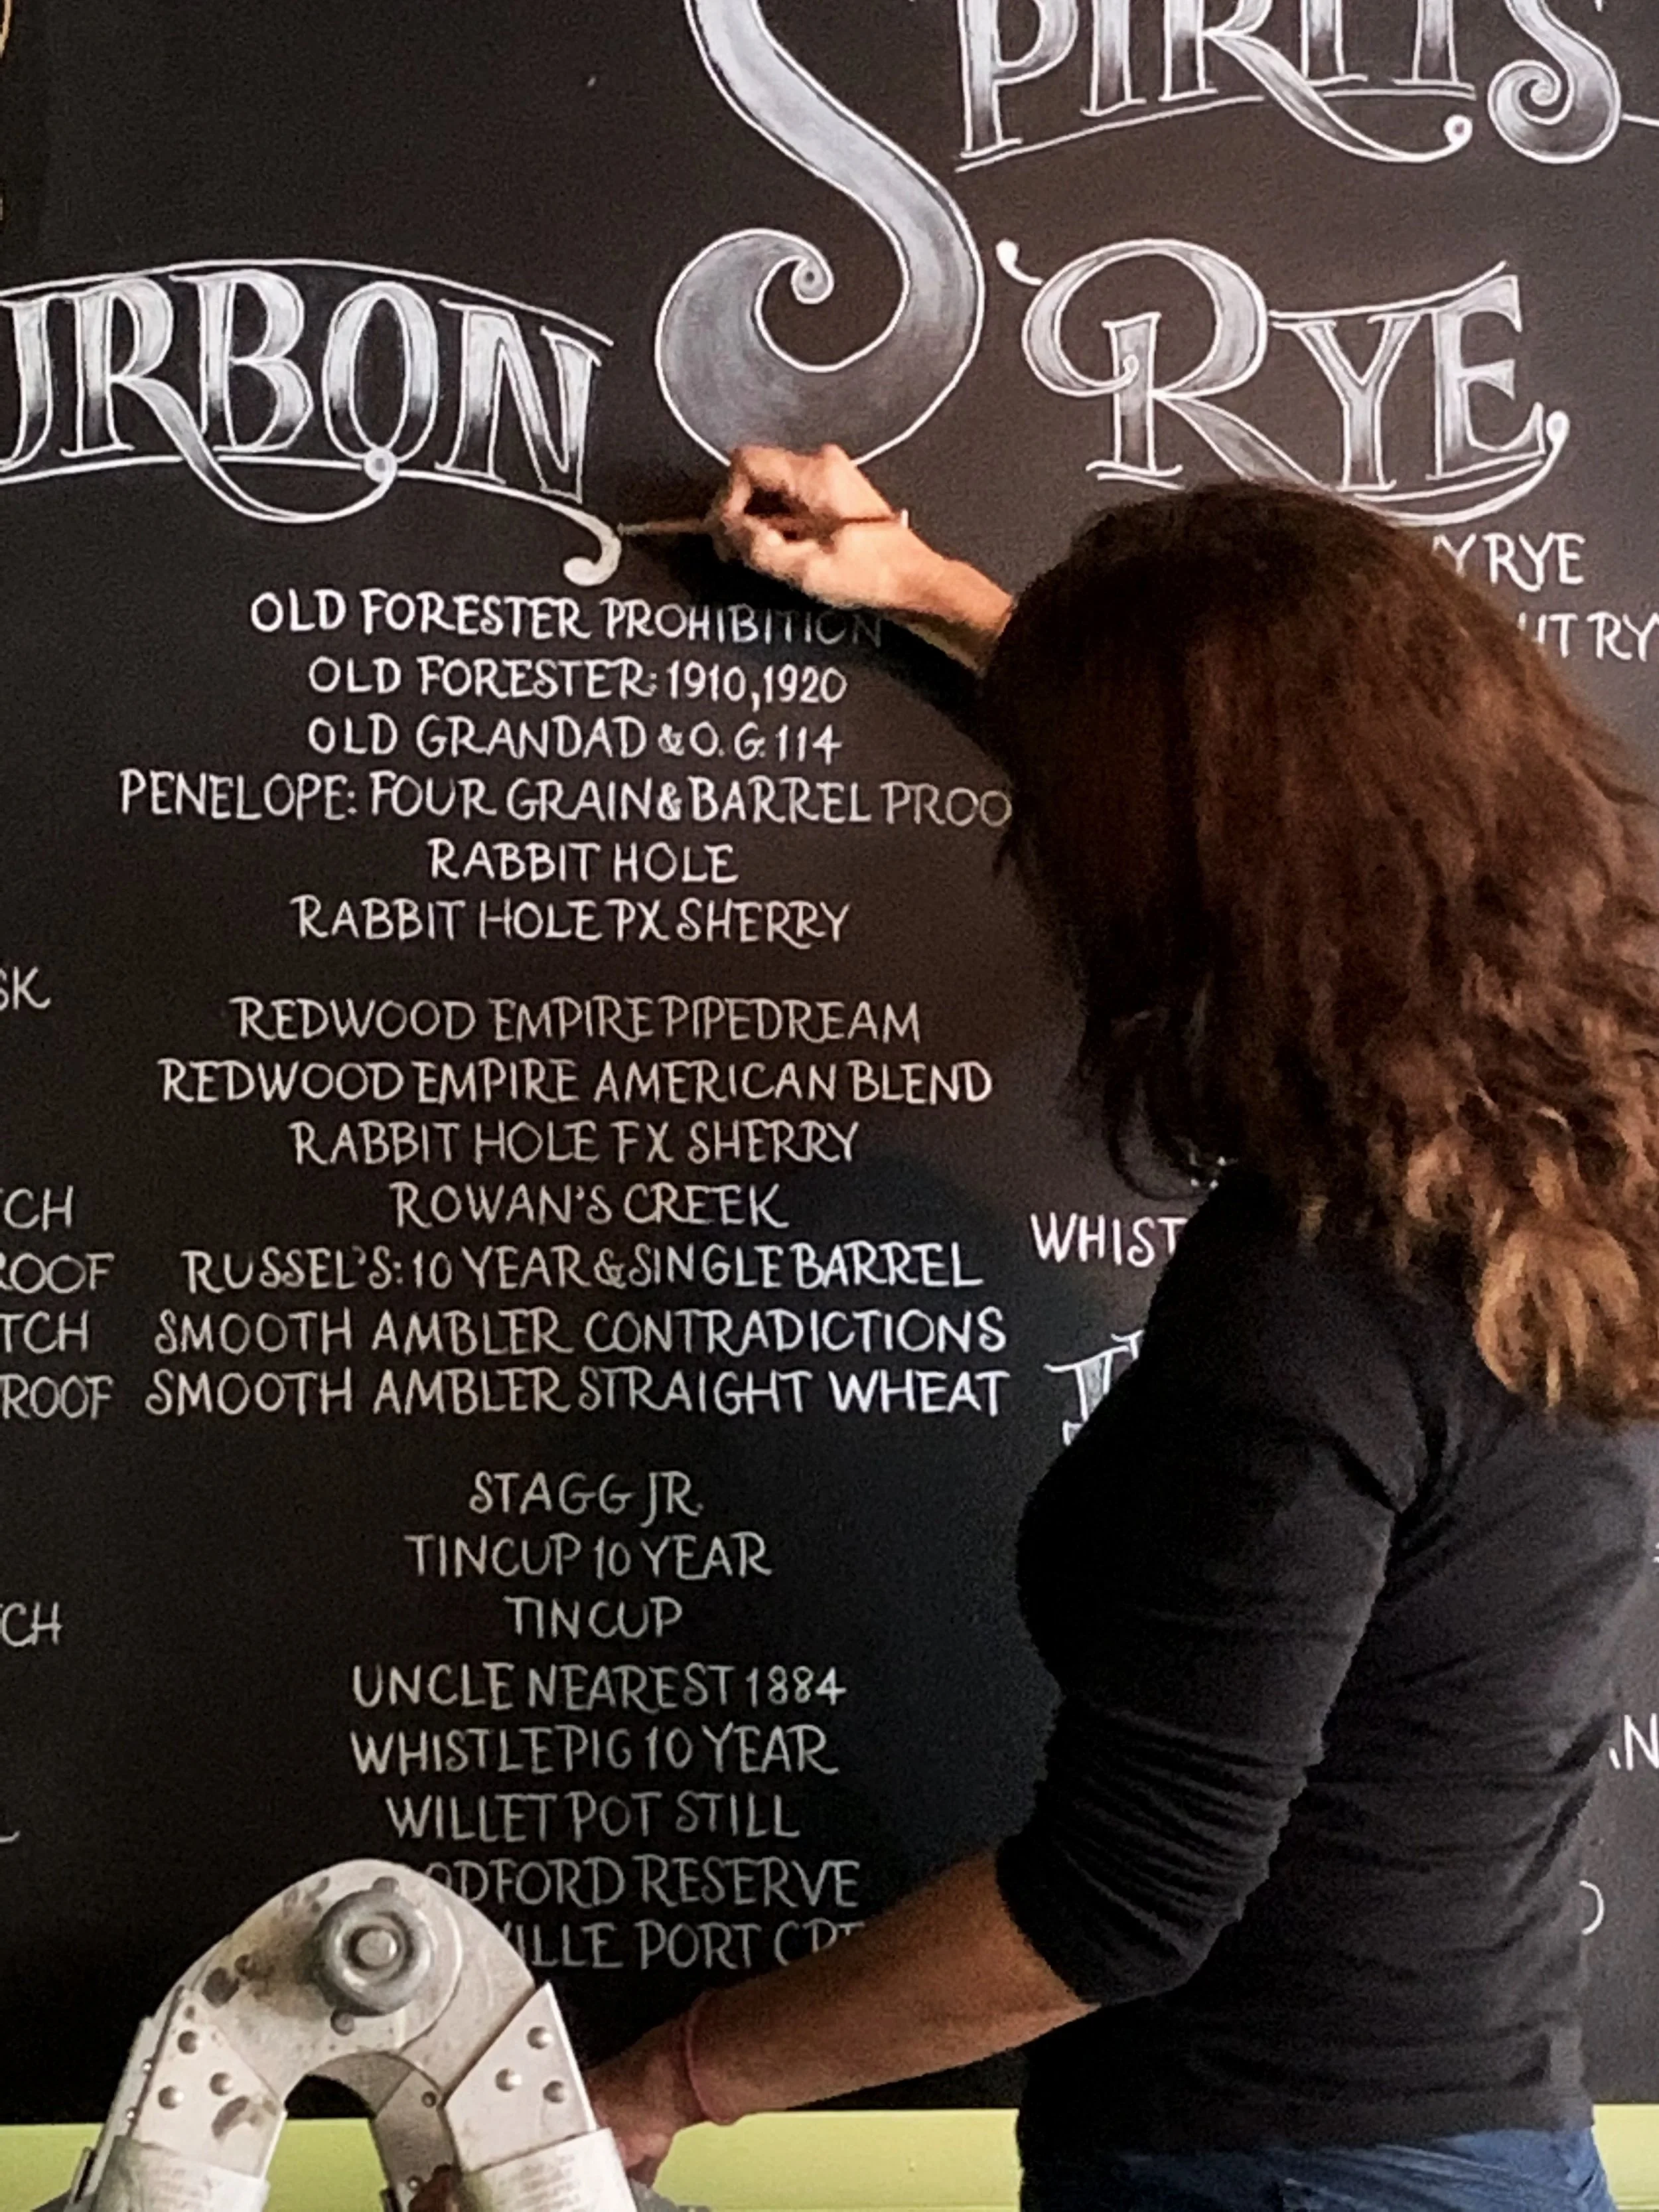 SPIRITS
URBON
RYE
Y RYE
OLD FORESTER PROHIBITION
HT RY
OLD FORESTER: 1910,1920
OLD GRANDAD & O.G. 114
PENELOPE: FOUR GRAIN & BARREL PROO
RABBIT HOLE
RABBIT HOLE PX SHERRY
SK
REDWOOD EMPIRE PIPEDREAM
REDWOOD EMPIRE AMERICAN BLEND
RABBIT HOLE FX SHERRY
TCH
ROWAN'S CREEK
WHIST
ROOF
RUSSEL'S: 10 YEAR & SINGLE BARREL
TCH
SMOOTH AMBLER CONTRADICTIONS
ROOF
SMOOTH AMBLER STRAIGHT WHEAT
STAGG JR.
TINCUP 10 YEAR
CH
TINCUP
UNCLE NEAREST 1884
WHISTLEPIG 10 YEAR
WILLET POT STILL
ODFORD RESERVE
VILLE PORT